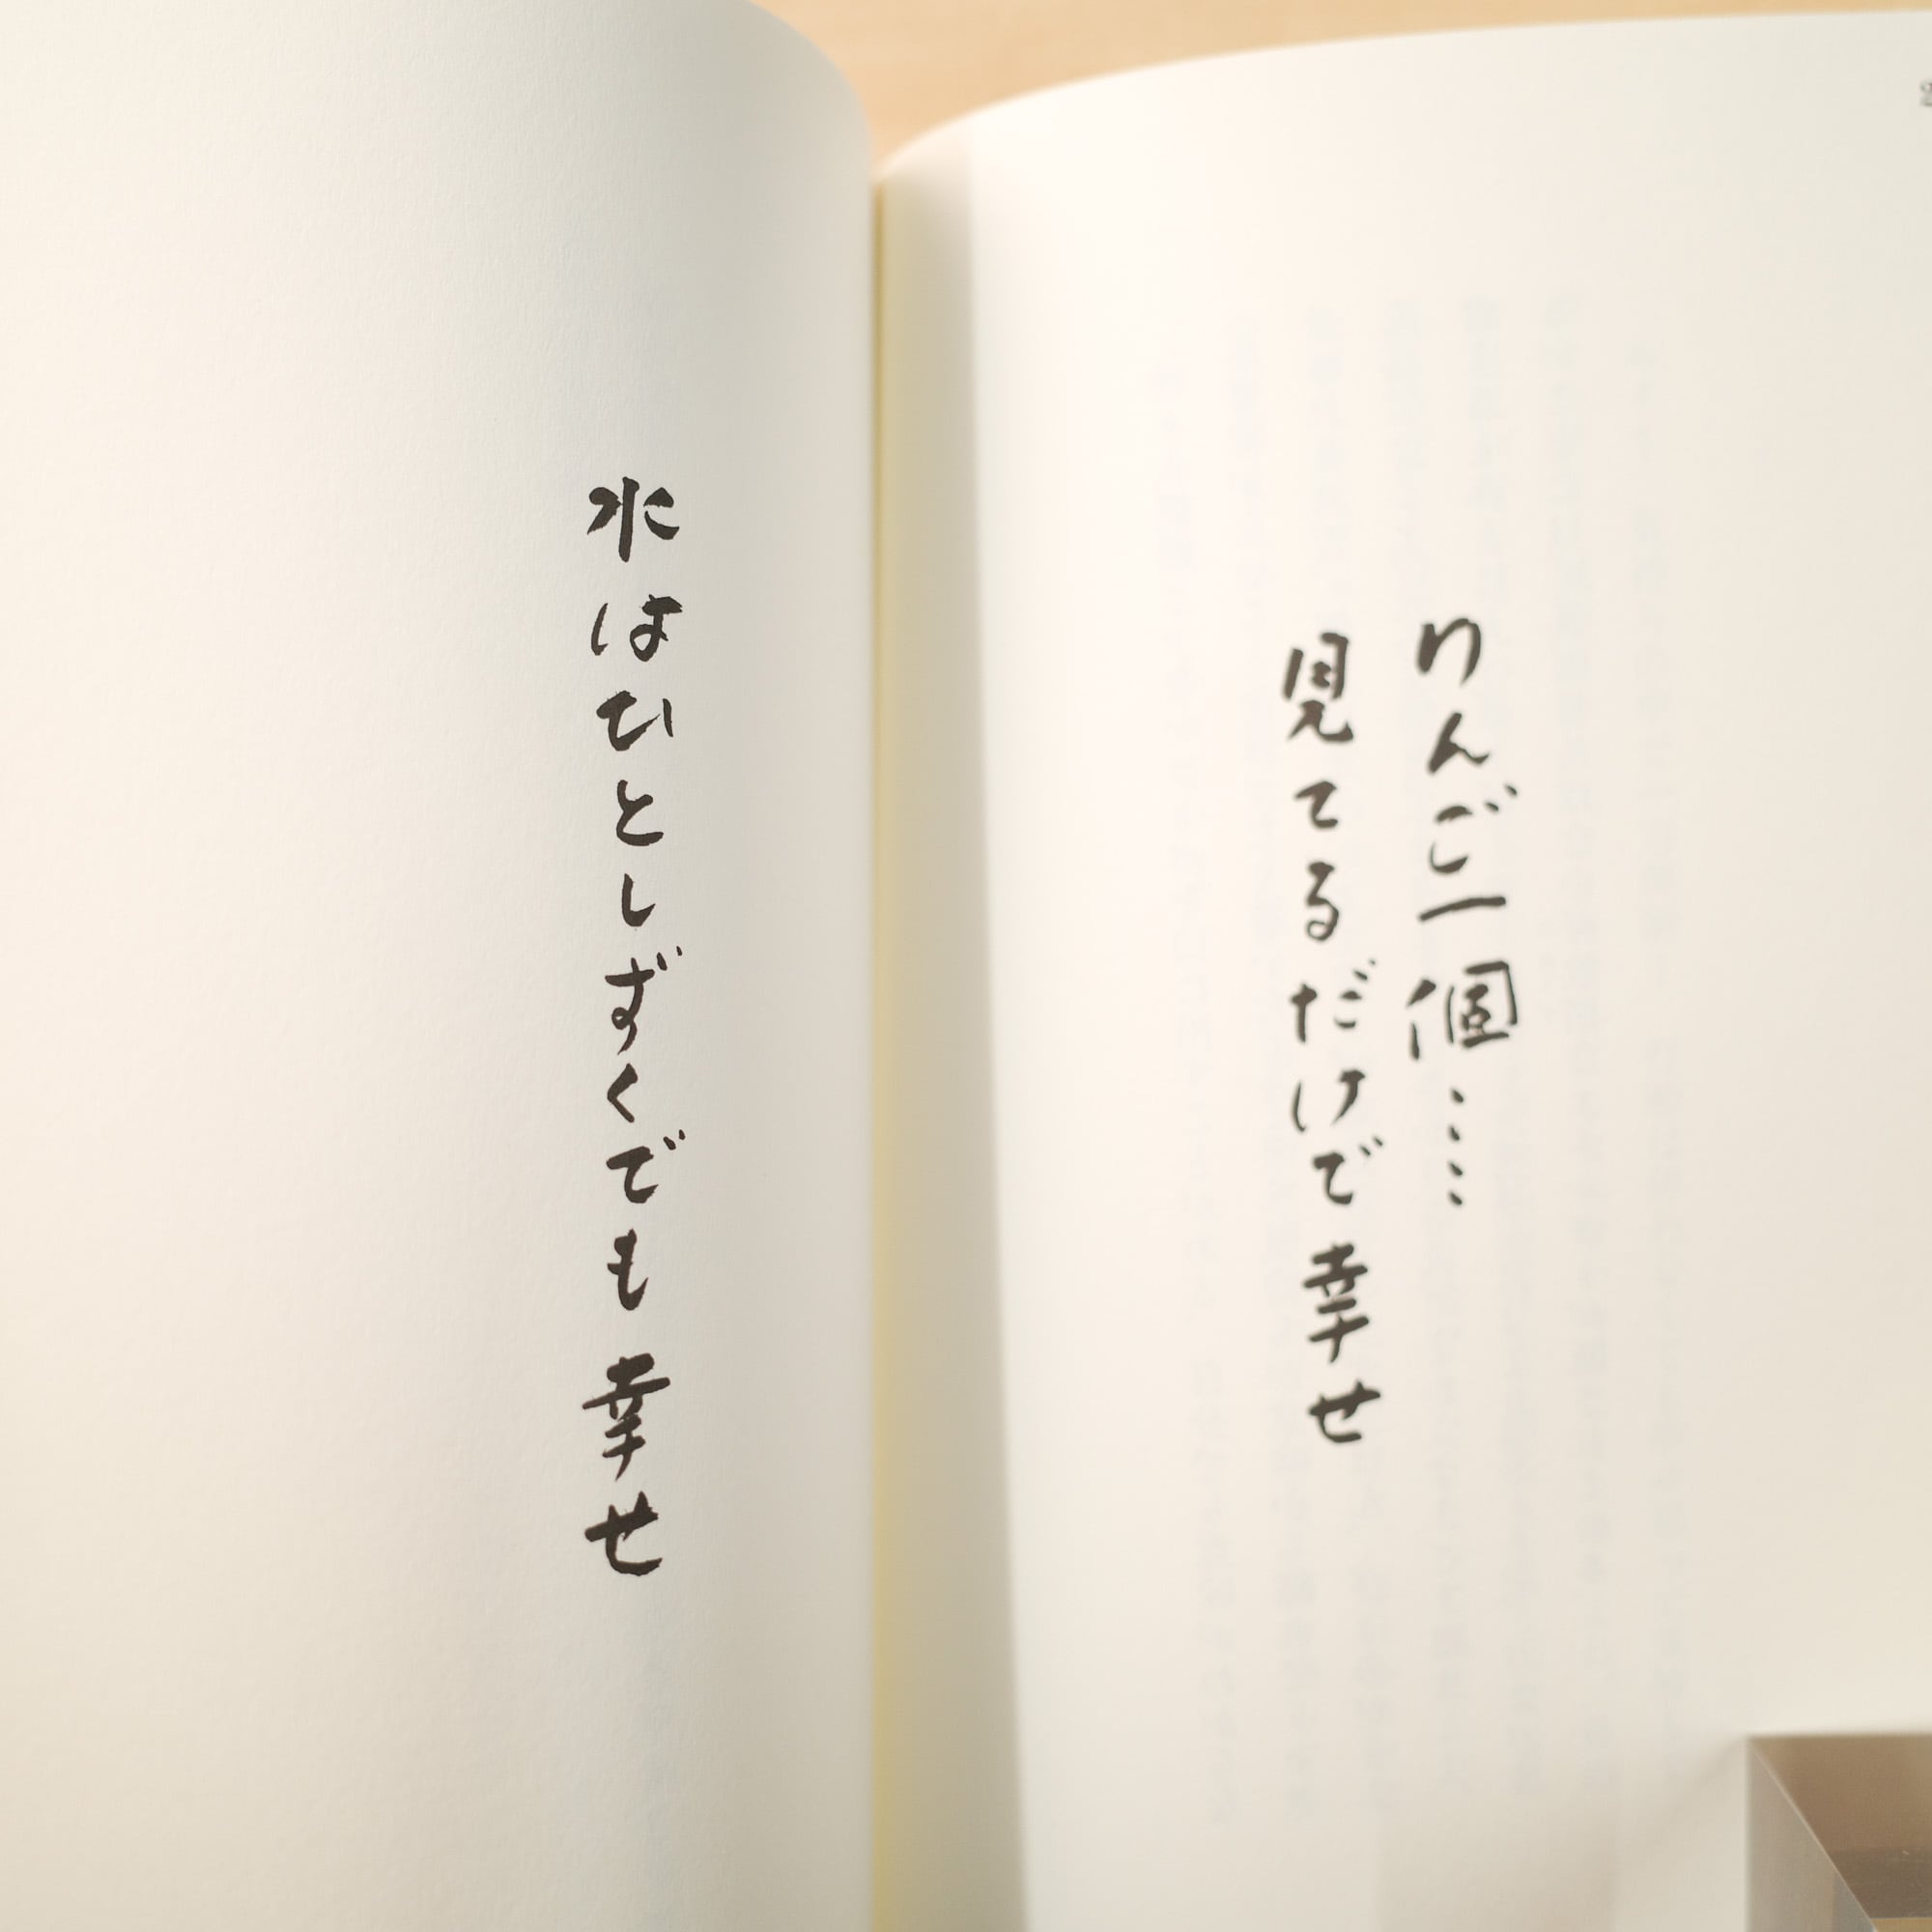 りんご一個……
見てるだけで幸せ
水はひとしずくでも幸せ